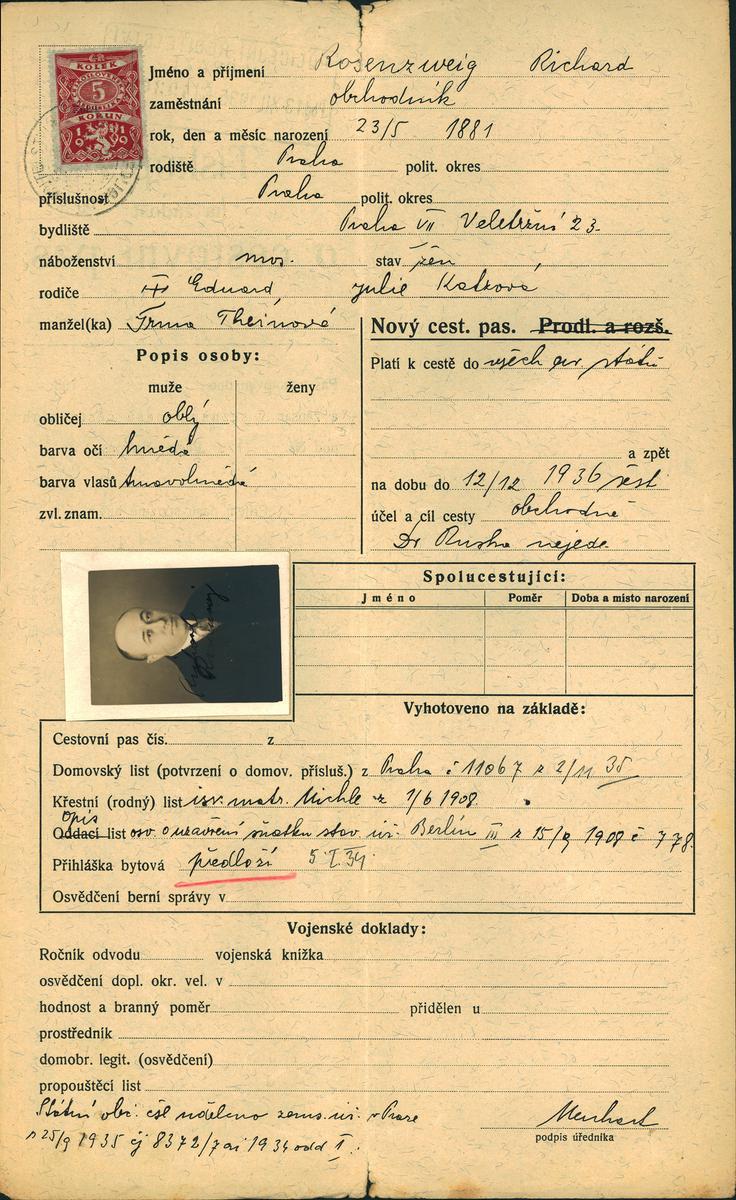 KOLEK
5
KORUN
1919
Jméno a příjmení Rosenzweig Richard
zaměstnání obchodník
rok, den a měsíc narození 23/5 1881
rodiště Praha polit. okres
příslušnost Praha polit. okres
bydliště Praha VII Veletržní 23.
náboženství mos. stav žen
rodiče Eduard Julie Katzová
manžel(ka) Irma Theinová
Nový cest. pas. Prodl. a rozš.
Popis osoby:
Platí k cestě do všech evr. států
muže ženy
obličej oblý
barva očí hnědá
a zpět
barva vlasů tmavohnědá
na dobu do 12/12 1936 šest
zvl. znam.
účel a cíl cesty obchodně
Do Ruska nejede
Spolucestující:
Jméno Poměr Doba a místo narození
Vyhotoveno na základě:
Cestovní pas čís. z
Domovský list (potvrzení o domov. přísluš.) z Praha č 11067 z 2/11 35
Křestní (rodný) list isr. matr. Michle z 1/6 1908.
opis
Oddací list osv. o uzavření sňatku stav. úř. Berlín III z 15/9 1908 č 778.
Přihláška bytová předloží 5.I.34.
Osvědčení berní správy v
Vojenské doklady:
Ročník odvodu vojenská knížka
osvědčení dopl. okr. vel. v
hodnost a branný poměr přidělen u
prostředník
domobr. legit. (osvědčení)
propouštěcí list
Státní obč. čsl uděleno zems. úř. v Praze
z 25/9 1935 čj 8372/7 ai 1934 odd I.
Menhart
podpis úředníka